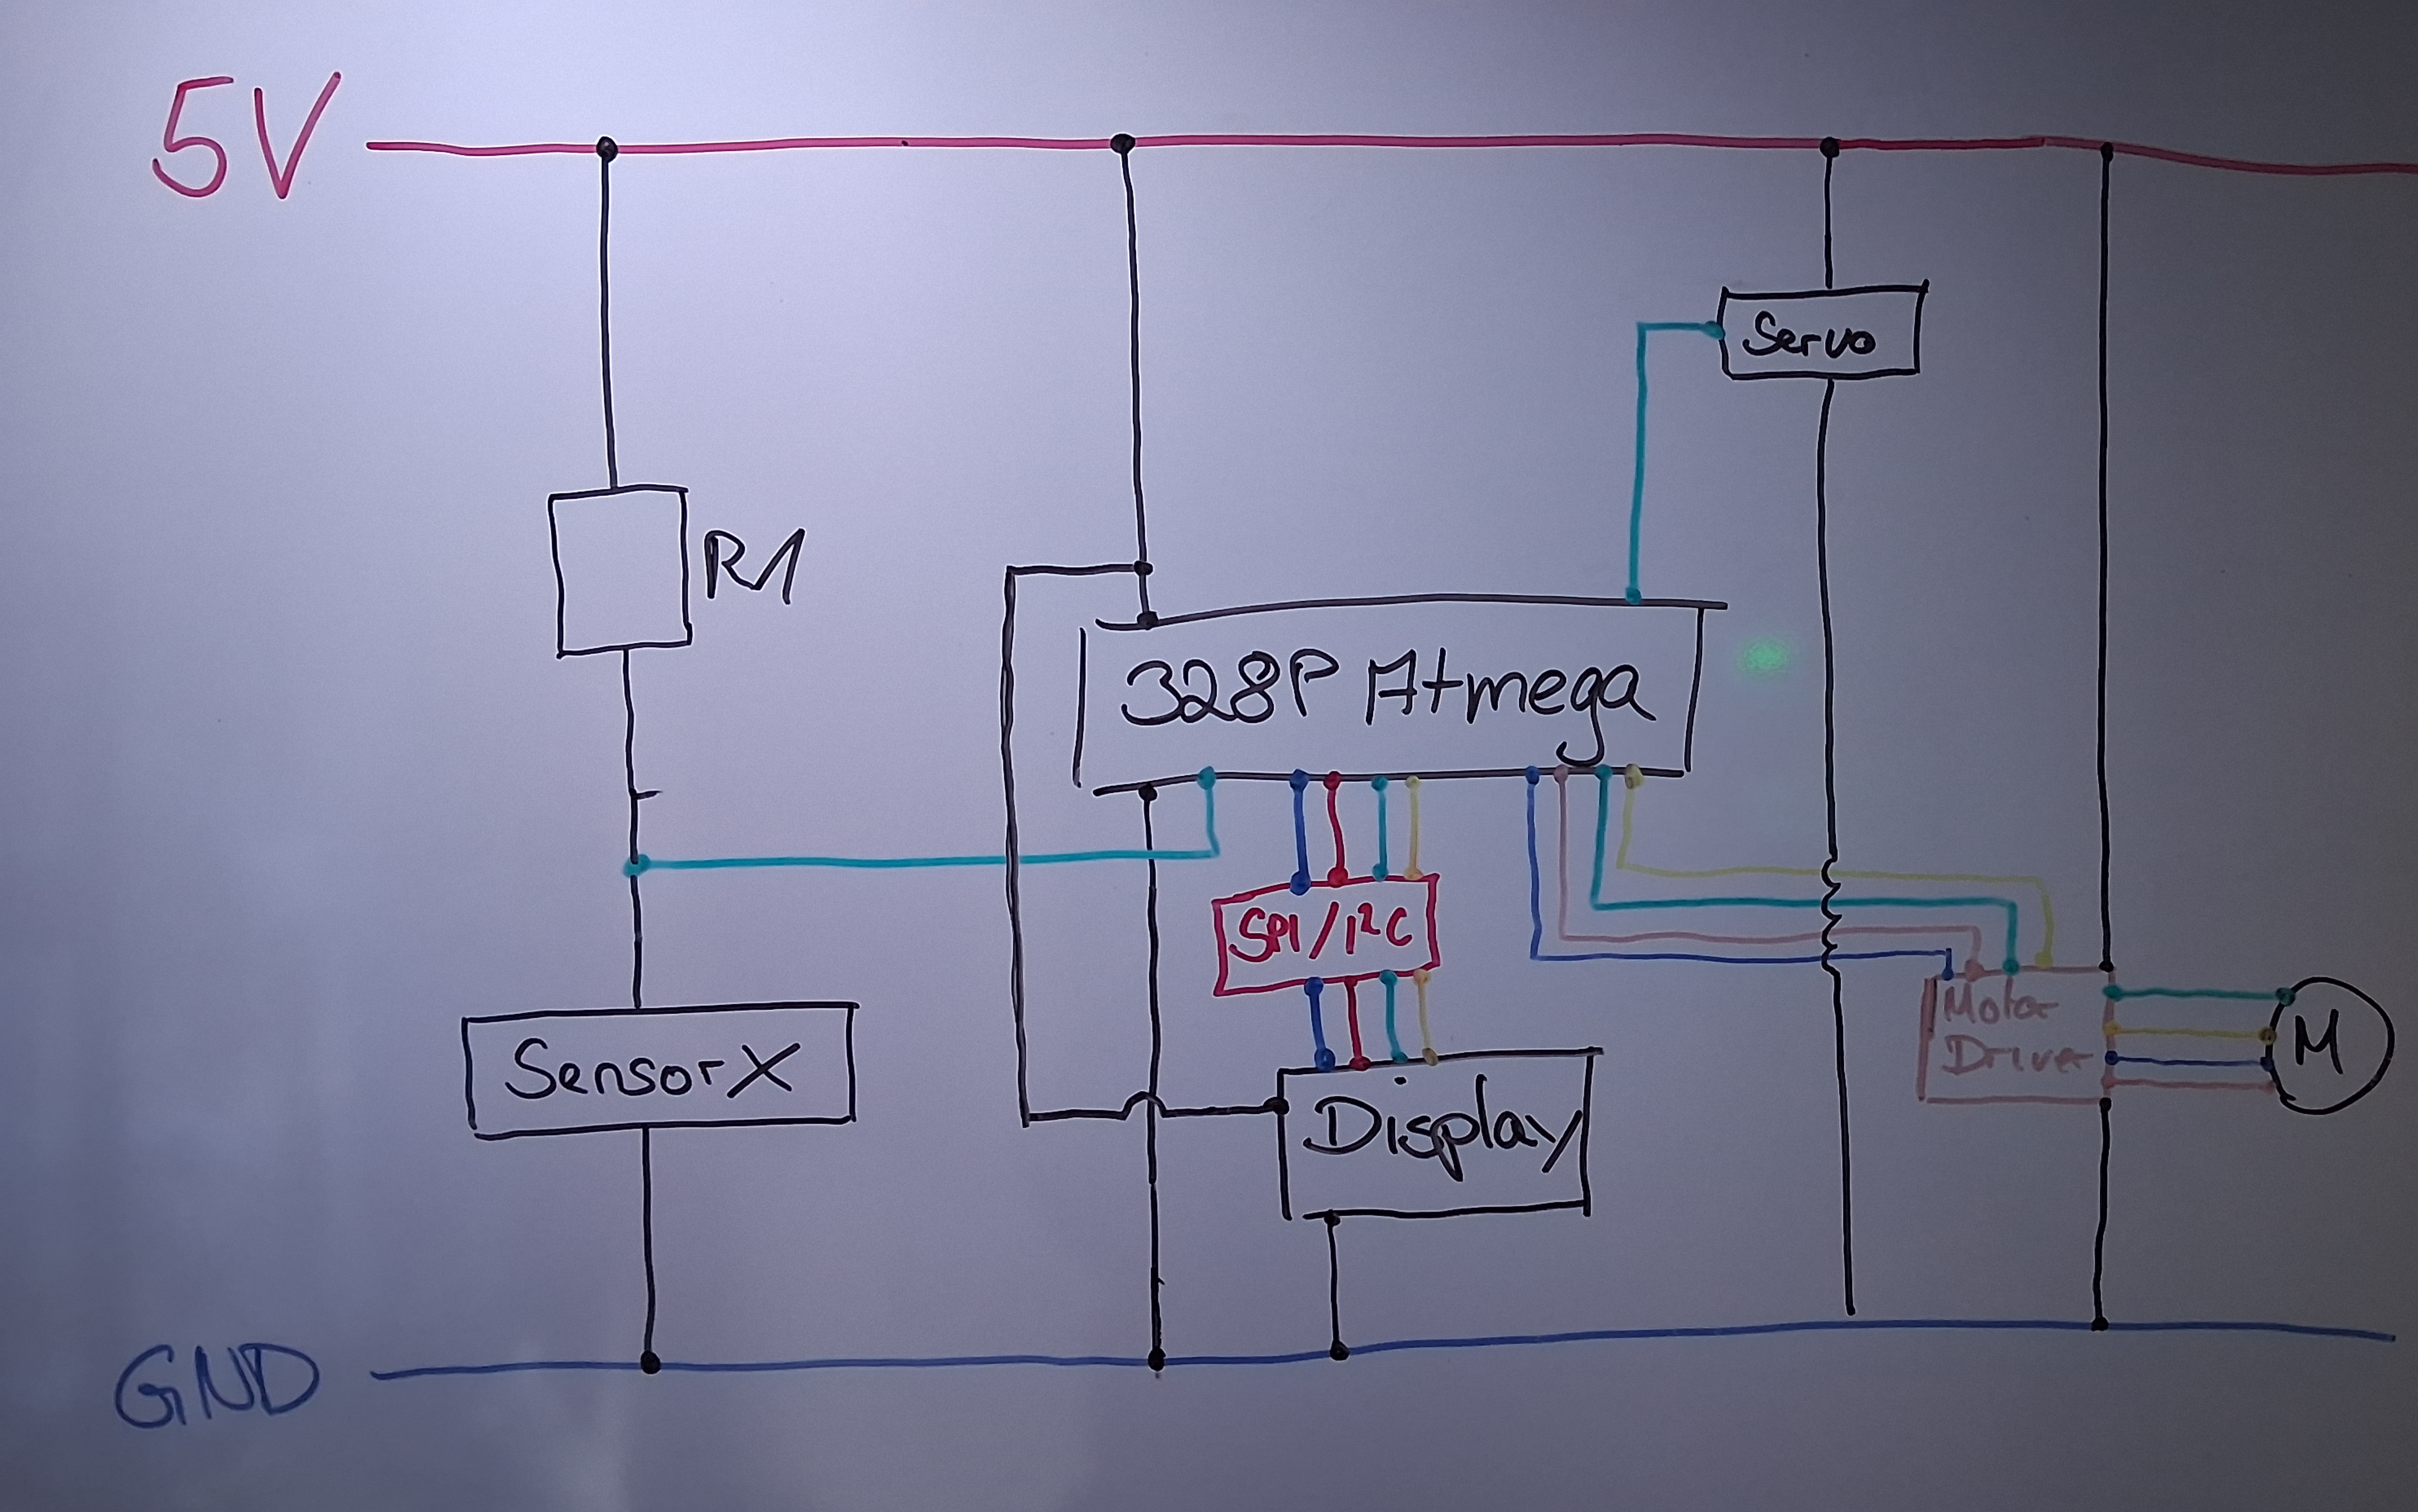 5V
Servo
R1
328P Atmega
SPI/I²C
Motor
Driver
M
SensorX
Display
GND